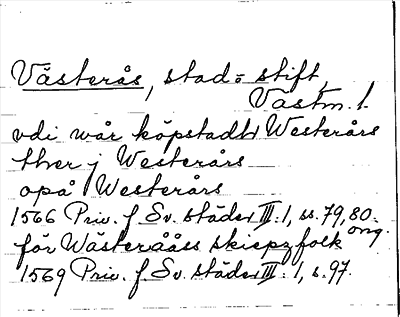 Västerås, stad o stift,
Vastm. l.
vdi wår köpstadt Westerårs
ther j Westerårs
opå Westerårs
1566 Priv. f. Sv. städer III: 1, ss. 79, 80.
för Wästerååss skiepzfolk
orig.
1569 Priv. f. Sv. städer III: 1, s. 97.